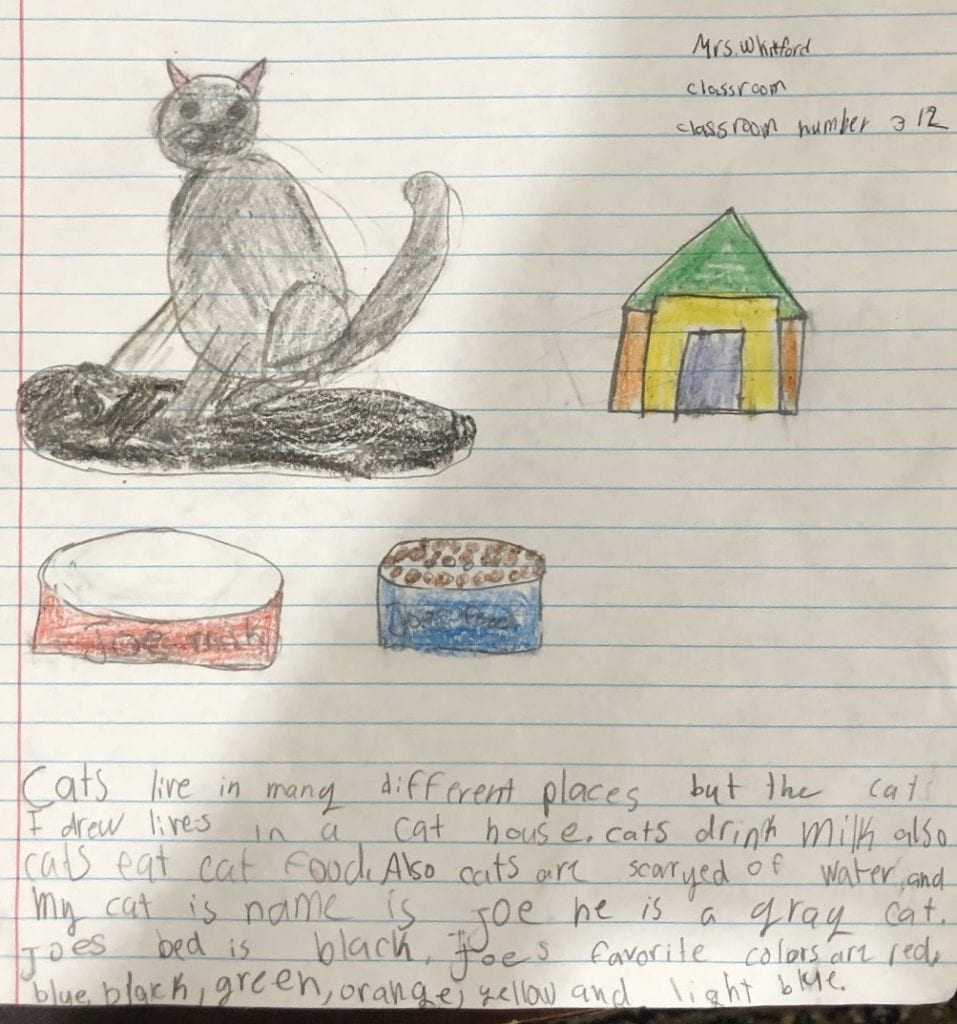 Mrs. Whitford
classroom
classroom number 312
Joe milk
Joes food
Cats live in many different places but the cats
I drew lives in a cat house. cats drink milk also
cats eat cat food. Also cats are scaryed of water, and
my cat is name is Joe he is a gray cat.
Joes bed is black. Joe's favorite colors are red,
blue, black, green, orange, yellow and light blue.